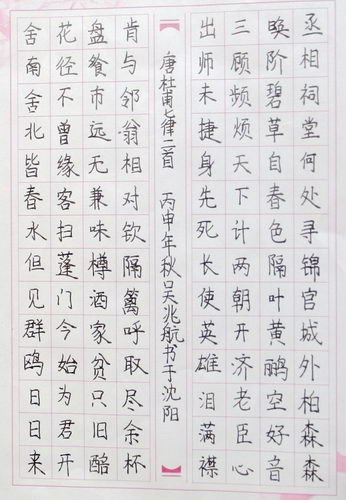 丞相祠堂何处寻锦官城外柏森森
映阶碧草自春色隔叶黄鹂空好音
三顾频烦天下计两朝开济老臣心
出师未捷身先死长使英雄泪满襟
唐杜甫七律二首 丙申年秋吴兆航书于沈阳
舍南舍北皆春水但见群鸥日日来
花径不曾缘客扫蓬门今始为君开
盘餐市远无兼味樽酒家贫只旧醅
肯与邻翁相对饮隔篱呼取尽余杯